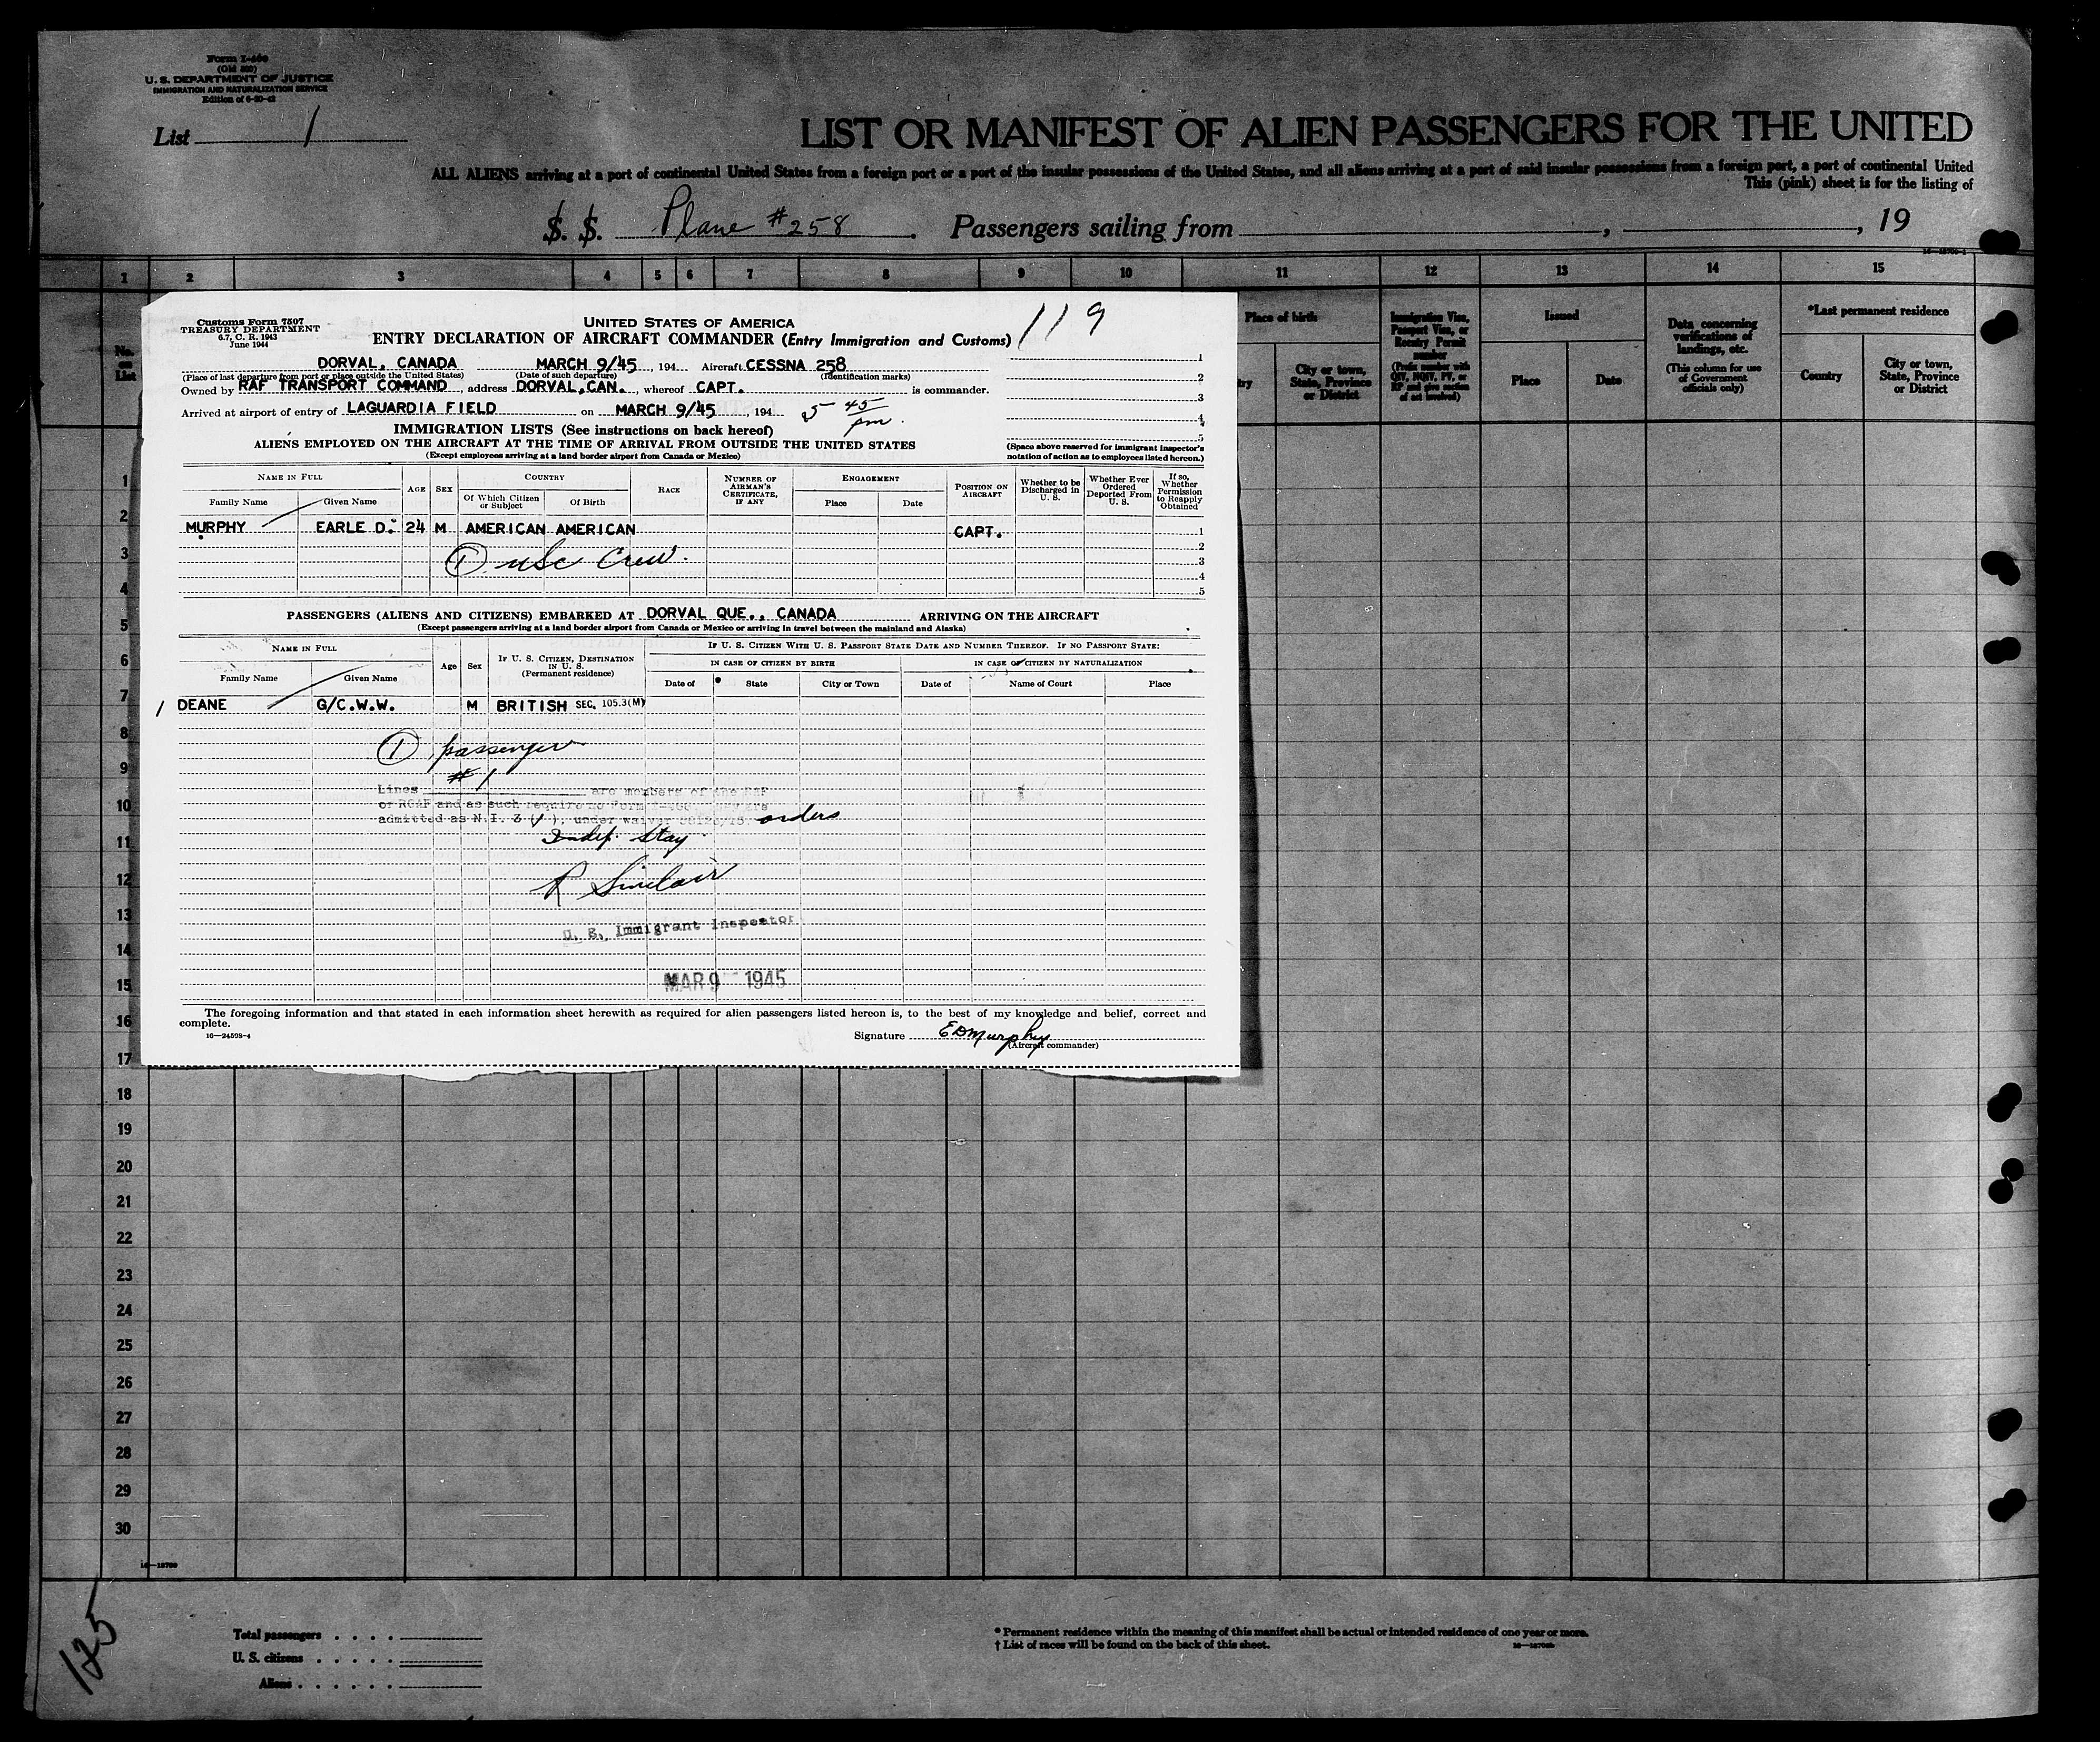 Form I-466
(Old 500)
U. S. DEPARTMENT OF JUSTICE
IMMIGRATION AND NATURALIZATION SERVICE
Edition of 6-20-42
List 1
LIST OR MANIFEST OF ALIEN PASSENGERS FOR THE UNITED
ALL ALIENS arriving at a port of continental United States from a foreign port or a port of the insular possessions of the United States, and all aliens arriving at a port of said insular possessions from a foreign port, a port of continental United
This (pink) sheet is for the listing of
S. S. Plane #258. Passengers sailing from , , 19
1 2 3 4 5 6 7 8 9 10 11 12 13 14 15
No. on List
Place of birth
City or town, State, Province or District
Immigration Visa, Passport Visa, or Reentry Permit number
(Prefix number with QIV, NQIV, PV, or RP and give section of act involved)
Issued
Place Date
Data concerning verifications of landings, etc.
(This column for use of Government officials only)
*Last permanent residence
Country City or town, State, Province or District
Customs Form 7507
TREASURY DEPARTMENT
6.7, C. R. 1943
June 1944
UNITED STATES OF AMERICA
ENTRY DECLARATION OF AIRCRAFT COMMANDER (Entry Immigration and Customs)
119
DORVAL, CANADA MARCH 9/45, 194 Aircraft CESSNA 258
(Place of last departure from port or place outside the United States) (Date of such departure) (Identification marks)
Owned by RAF TRANSPORT COMMAND, address DORVAL,CAN., whereof CAPT. is commander.
Arrived at airport of entry of LAGUARDIA FIELD on MARCH 9/45, 194 5 45 pm.
1
2
3
4
5
IMMIGRATION LISTS (See instructions on back hereof)
ALIENS EMPLOYED ON THE AIRCRAFT AT THE TIME OF ARRIVAL FROM OUTSIDE THE UNITED STATES
(Except employees arriving at a land border airport from Canada or Mexico)
(Space above reserved for immigrant inspector's notation of action as to employees listed hereon.)
NAME IN FULL
Family Name Given Name
AGE SEX
COUNTRY
Of Which Citizen or Subject Of Birth
RACE
NUMBER OF AIRMAN'S CERTIFICATE, IF ANY
ENGAGEMENT
Place Date
POSITION ON AIRCRAFT
Whether to be Discharged in U. S.
Whether Ever Ordered Deported From U. S.
If so, Whether Permission to Reapply Obtained
MURPHY EARLE D. 24 M AMERICAN AMERICAN CAPT. 1
2
① usc Crew. 3
4
5
PASSENGERS (ALIENS AND CITIZENS) EMBARKED AT DORVAL QUE., CANADA ARRIVING ON THE AIRCRAFT
(Except passengers arriving at a land border airport from Canada or Mexico or arriving in travel between the mainland and Alaska)
NAME IN FULL
Family Name Given Name
Age Sex
IF U. S. CITIZEN, DESTINATION IN U. S.
(Permanent residence)
IF U. S. CITIZEN WITH U. S. PASSPORT STATE DATE AND NUMBER THEREOF. IF NO PASSPORT STATE:
IN CASE OF CITIZEN BY BIRTH IN CASE OF CITIZEN BY NATURALIZATION
Date of State City or Town Date of Name of Court Place
1 DEANE G/C.W.W. M BRITISH SEC. 105.3(M)
① passenger
# 1
Lines are members of the RAF
or RCAF and as such require no Form
admitted as N.I. 3 (✓), under waiver orders
Indef. Stay
R Sinclair
U. S. Immigrant Inspector
MAR 9 1945
The foregoing information and that stated in each information sheet herewith as required for alien passengers listed hereon is, to the best of my knowledge and belief, correct and
complete.
16—24598-4
Signature EDMurphy
(Aircraft commander)
1
2
3
4
5
6
7
8
9
10
11
12
13
14
15
16
17
18
19
20
21
22
23
24
25
26
27
28
29
30
16—18709
125
Total passengers
U. S. citizens
Aliens
* Permanent residence within the meaning of this manifest shall be actual or intended residence of one year or more.
† List of races will be found on the back of this sheet.